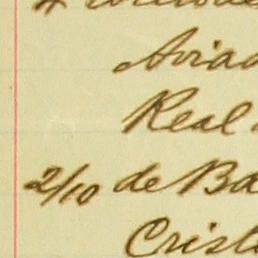 Aviad
Real
2/10 de Ba
Crist